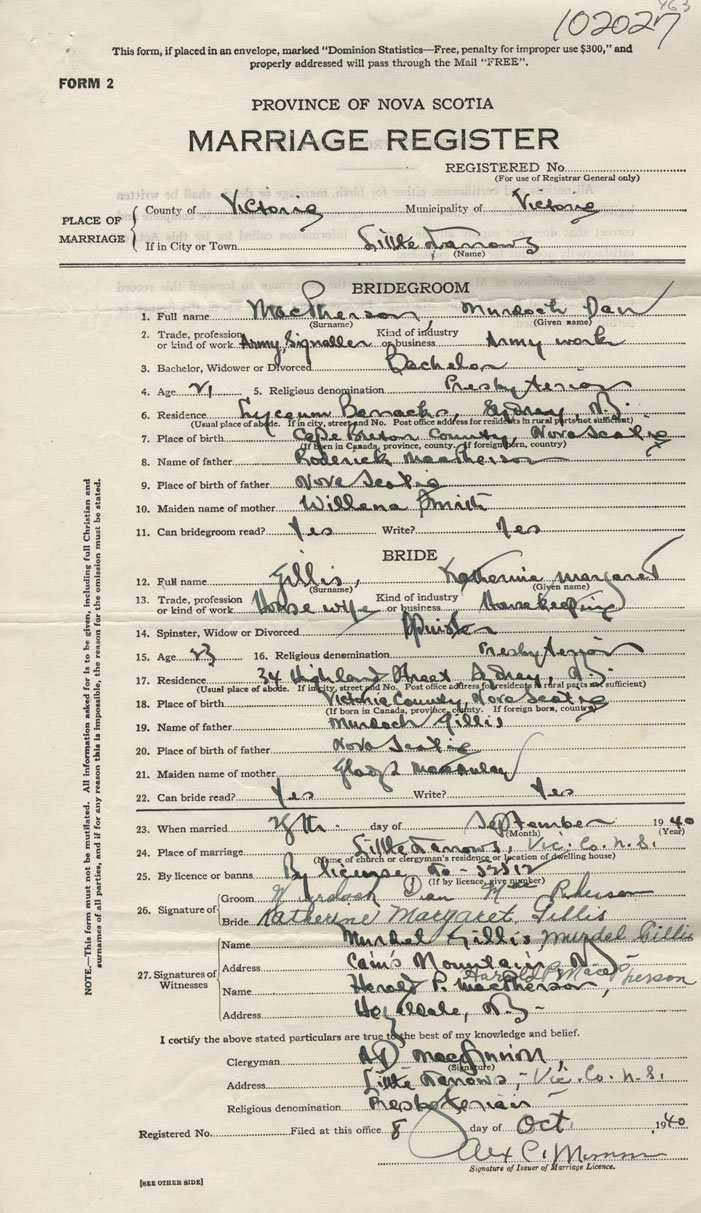 102027
This form, if placed in an envelope, marked "Dominion Statistics—Free, penalty for improper use $300," and
properly addressed will pass through the Mail "FREE".
FORM 2
PROVINCE OF NOVA SCOTIA
MARRIAGE REGISTER
REGISTERED No.
(For use of Registrar General only)
PLACE OF MARRIAGE
County of Victoria Municipality of Victoria
If in City or Town Little Narrows
(Name)
BRIDEGROOM
1. Full name MacPherson, Murdoch Dan
(Surname) (Given name)
2. Trade, profession or kind of work Army Signaller Kind of industry or business Army work
3. Bachelor, Widower or Divorced Bachelor
4. Age 21 5. Religious denomination Presbyterian
6. Residence Lyceum Barracks, Sydney, N.S.
(Usual place of abode. If in city, street and No. Post office address for residents in rural parts not sufficient)
7. Place of birth Cape Breton County, Nova Scotia
(If born in Canada, province, county. If foreign born, country)
8. Name of father Roderick MacPherson
9. Place of birth of father Nova Scotia
10. Maiden name of mother Willena Smith
11. Can bridegroom read? Yes Write? Yes
BRIDE
12. Full name Gillis, Katherine Margaret
(Surname) (Given name)
13. Trade, profession or kind of work House wife Kind of industry or business Housekeeping
14. Spinster, Widow or Divorced Spinster
15. Age 23 16. Religious denomination Presbyterian
17. Residence 34 Highland Street Sydney, N.S.
(Usual place of abode. If in city, street and No. Post office address for residents in rural parts not sufficient)
18. Place of birth Victoria County, Nova Scotia
(If born in Canada, province, county. If foreign born, country)
19. Name of father Murdoch Gillis
20. Place of birth of father Nova Scotia
21. Maiden name of mother Gladys MacAulay
22. Can bride read? Yes Write? Yes
23. When married day of September 1940
(Month) (Year)
24. Place of marriage Little Narrows, Vic. Co. N.S.
(Name of church or clergyman's residence or location of dwelling house)
25. By licence or banns By license No -
(If by licence, give number)
26. Signature of
Groom Murdoch Dan McPherson
Bride Katherine Margaret Gillis
27. Signatures of Witnesses
Name Murdel Gillis Murdel Gillis
Address Cain's Mountain, N.S.
Harold P. MacPherson
Name Harold P. MacPherson,
Address N.S.
I certify the above stated particulars are true to the best of my knowledge and belief.
Clergyman A D MacKinnon,
(Signature)
Address Little Narrows, Vic. Co. N.S.
Religious denomination Presbyterian
Registered No. Filed at this office 8 day of Oct. 1940
Alex
Signature of Issuer of Marriage Licence.
[SEE OTHER SIDE]
NOTE.—This form must not be mutilated. All information asked for is to be given, including full Christian and
surnames of all parties, and if for any reason this is impossible, the reason for the omission must be stated.